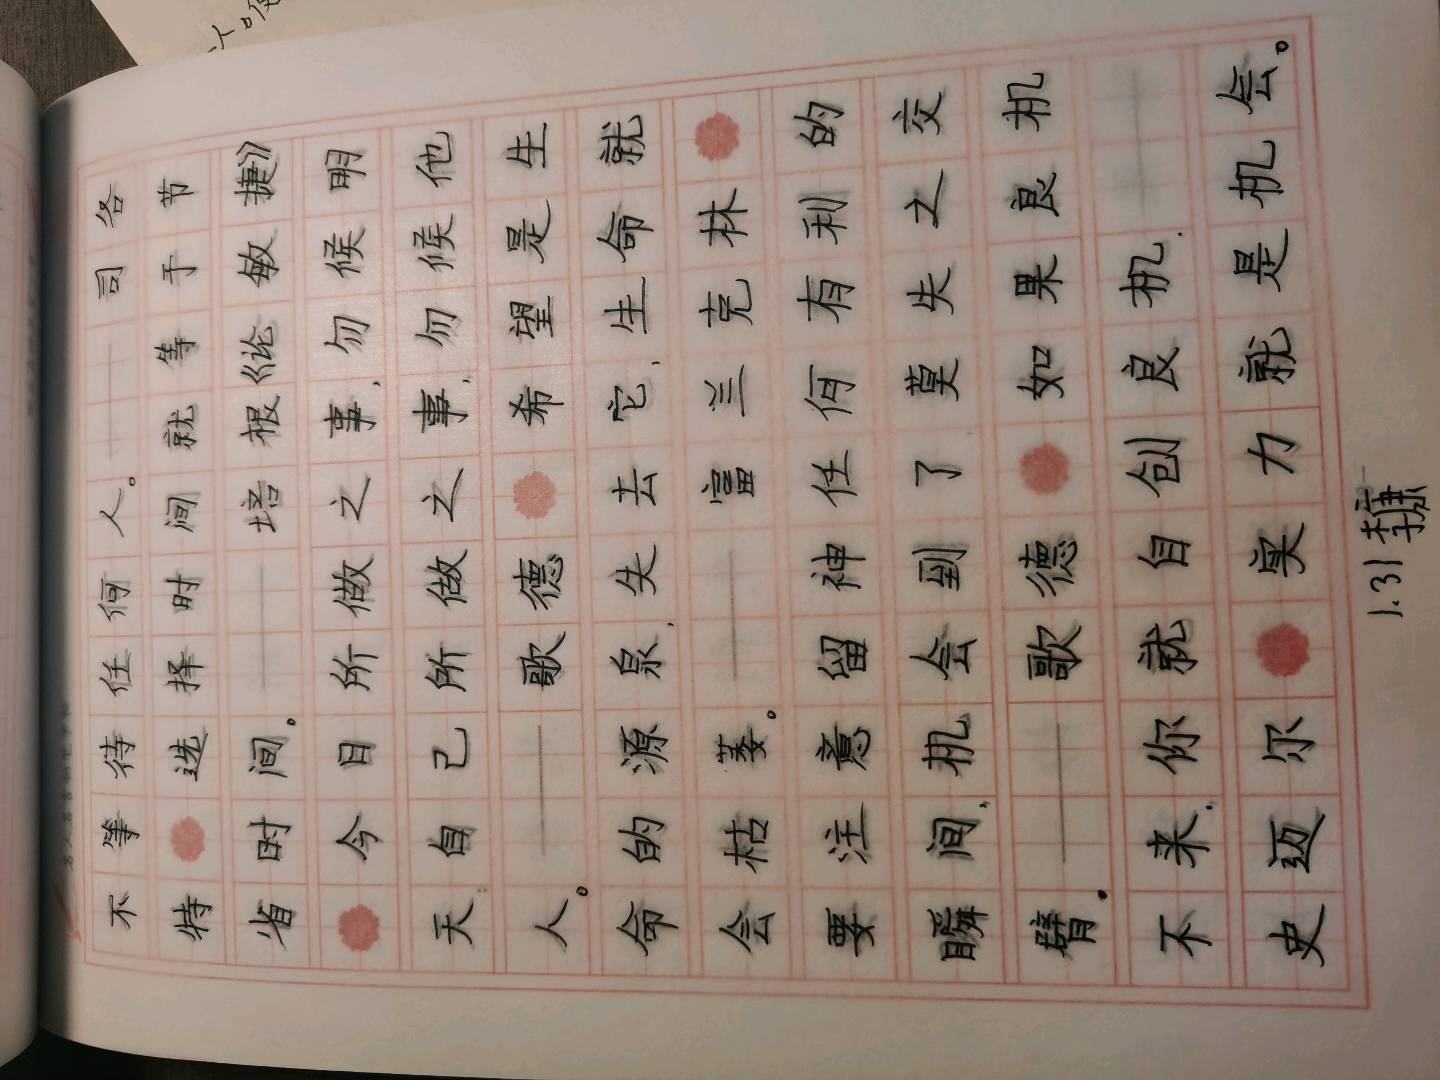 不等待任何人。——司各
特选择时间就等于节
省时间。——培根《论敏捷》
今日所做之事,勿候明
天,自己所做之事,勿候他
人。——歌德 希望是生
命的源泉,失去它,生命就
会枯萎。——富兰克林
要注意留神任何有利的
瞬间,机会到了莫失之交
臂。——歌德 如果良机
不来,你就自创良机.——
史迈尔 实力就是机会。
1.31